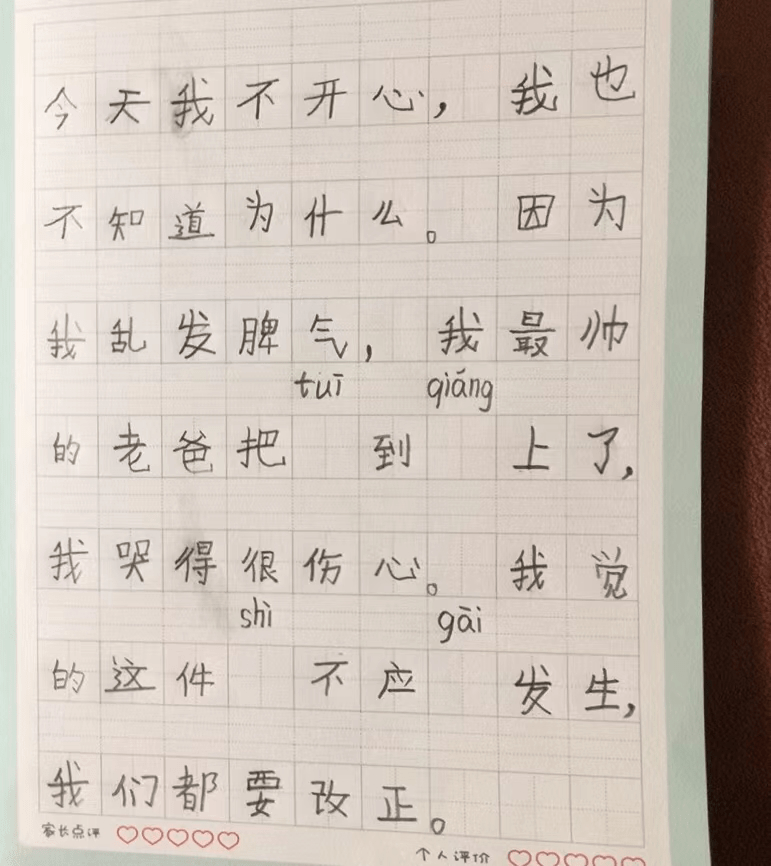 今天我不开心，我也
不知道为什么。因为
我乱发脾气，我最帅
tuī qiáng
的老爸把 到 上了，
我哭得很伤心。我觉
shì gāi
的这件 不应 发生，
我们都要改正。
家长点评
个人评价